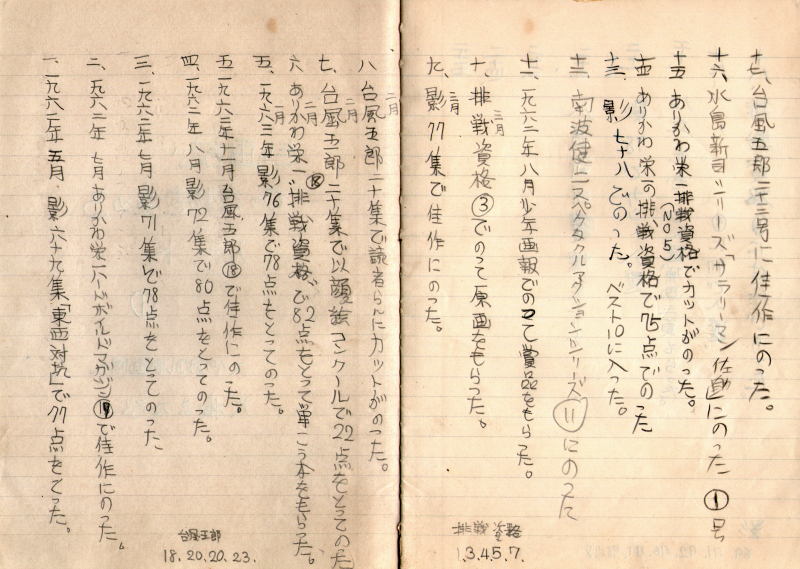 一、一九六二年五月、影六十九集「東西対抗」で77点をとった。
二、一九六二年七月ありかわ栄一ハードボイルドマガジン⑲で佳作にのった。
三、一九六二年七月影71集で78点をとってのった
四、一九六二年八月影72集で80点をとってのった。
五一九六二年十一月台風五郎⑱で佳作にのった。
五、一九六三年二月影76集で78点をとってのった。
六ありかわ栄一"排戦資格"で82点をとって単こう本をもらった。
二月
七、台風五郎二十集で以顔絵コンクールで22点をとってのった
二月
八台風五郎二十集で読者らんにカットがのった。
二月
台風五郎
18.20.20.23.
九、影77集で佳作にのった。
三月
十、排戦資格③でのって原画をもらった。
三月
十一、一九六二年八月少年画報でのって賞品をもらった。
十二、南波健二スペクタクルアクションシリーズ⑪にのった
十三、影七十八でのった。ベスト10に入った。
十四ありかわ栄一の排戦資格で75点でのった
十五ありかわ栄一排戦資格でカットがのった。
(NO5)
十六、水島新司シリーズ「サラリーマン佐助」にのった①号
十七、台風五郎二十三号に佳作にのった。
排戦資格
1.3.4.5.7.